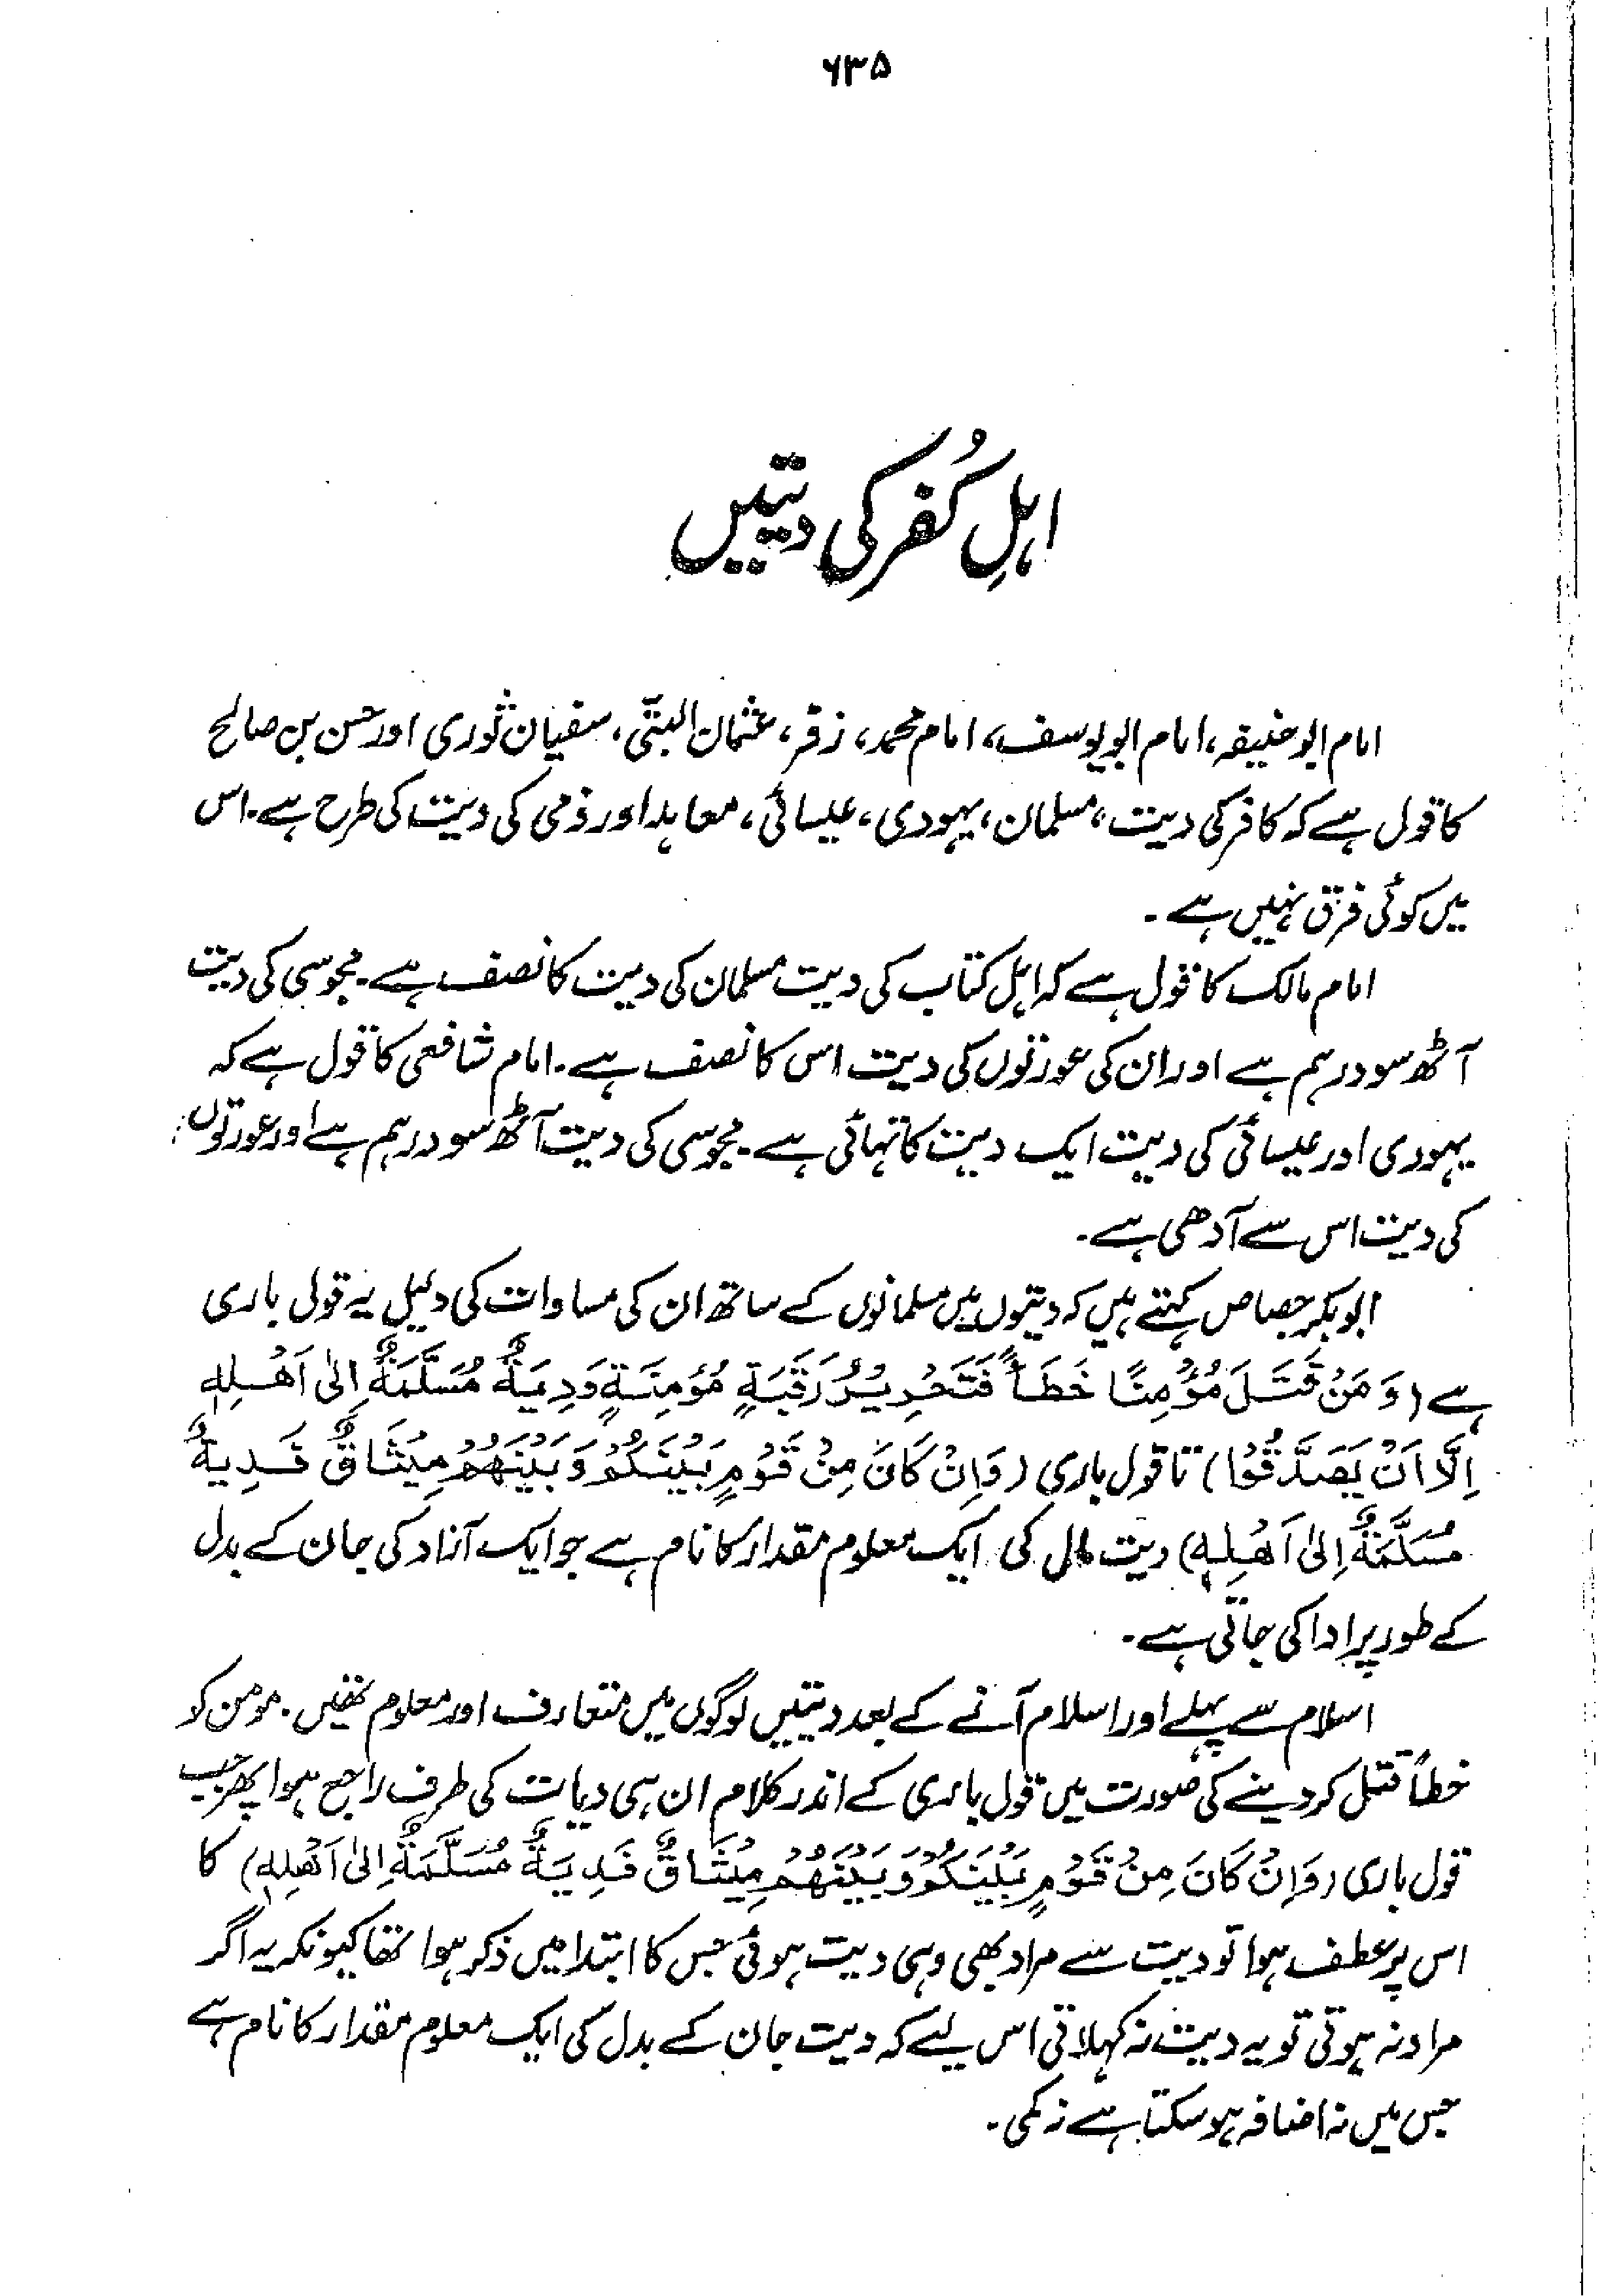 ۶۳۵
اہلِ کُفر کی دیتیں
امام ابو حنیفہ، امام ابو یوسف، امام محمد، زفر، عثمان البتّی، سفیان ثوری اور حسن بن صالح
کا قول ہے کہ کافر کی دیت، مسلمان، یہودی، عیسائی، معاہد اور ذمی کی دیت کی طرح ہے۔ اس
میں کوئی فرق نہیں ہے۔
امام مالک کا قول ہے کہ اہل کتاب کی دیت مسلمان کی دیت کا نصف ہے۔ مجوسی کی دیت
آٹھ سو درہم ہے اور ان کی عورتوں کی دیت اس کا نصف ہے۔ امام شافعی کا قول ہے کہ
یہودی اور عیسائی کی دیت ایک دیت کا تہائی ہے۔ مجوسی کی دیت آٹھ سو درہم ہے اور عورتوں
کی دیت اس سے آدھی ہے۔
ابو بکر جصاص کہتے ہیں کہ دیتوں میں مسلمانوں کے ساتھ ان کی مساوات کی دلیل یہ قول باری
ہے (وَ مَنْ قَتَلَ مُؤْمِنًا خَطَأً فَتَحْرِیْرُ رَقَبَةٍ مُؤْمِنَةٍ وَدِیَةٌ مُسَلَّمَةٌ اِلٰی اَهْلِهٖ
اِلَّا اَنْ یَصَّدَّقُوْا) تا قول باری (وَاِنْ کَانَ مِنْ قَوْمٍ بَیْنَکُمْ وَبَیْنَهُمْ مِیْثَاقٌ فَدِیَةٌ
مُسَلَّمَةٌ اِلٰی اَهْلِهٖ) دیت مال کی ایک معلوم مقدار کا نام ہے جو ایک آزاد کی جان کے بدل
کے طور پر ادا کی جاتی ہے۔
اسلام سے پہلے اور اسلام آنے کے بعد دیتیں لوگوں میں متعارف اور معلوم تھیں۔ مومن کو
خطأً قتل کر دینے کی صورت میں قول باری کے اندر کلام ان ہی دیات کی طرف راجع ہوا پھر جب
قول باری (وَاِنْ کَانَ مِنْ قَوْمٍ بَیْنَکُمْ وَبَیْنَهُمْ مِیْثَاقٌ فَدِیَةٌ مُسَلَّمَةٌ اِلٰی اَهْلِهٖ) کا
اس پر عطف ہوا تو دیت سے مراد بھی وہی دیت ہوئی جس کا ابتدا میں ذکر ہوا تھا کیونکہ یہ اگر
مراد نہ ہوتی تو یہ دیت نہ کہلاتی اس لیے کہ دیت جان کے بدل کی ایک معلوم مقدار کا نام ہے
جس میں نہ اضافہ ہو سکتا ہے نہ کمی۔